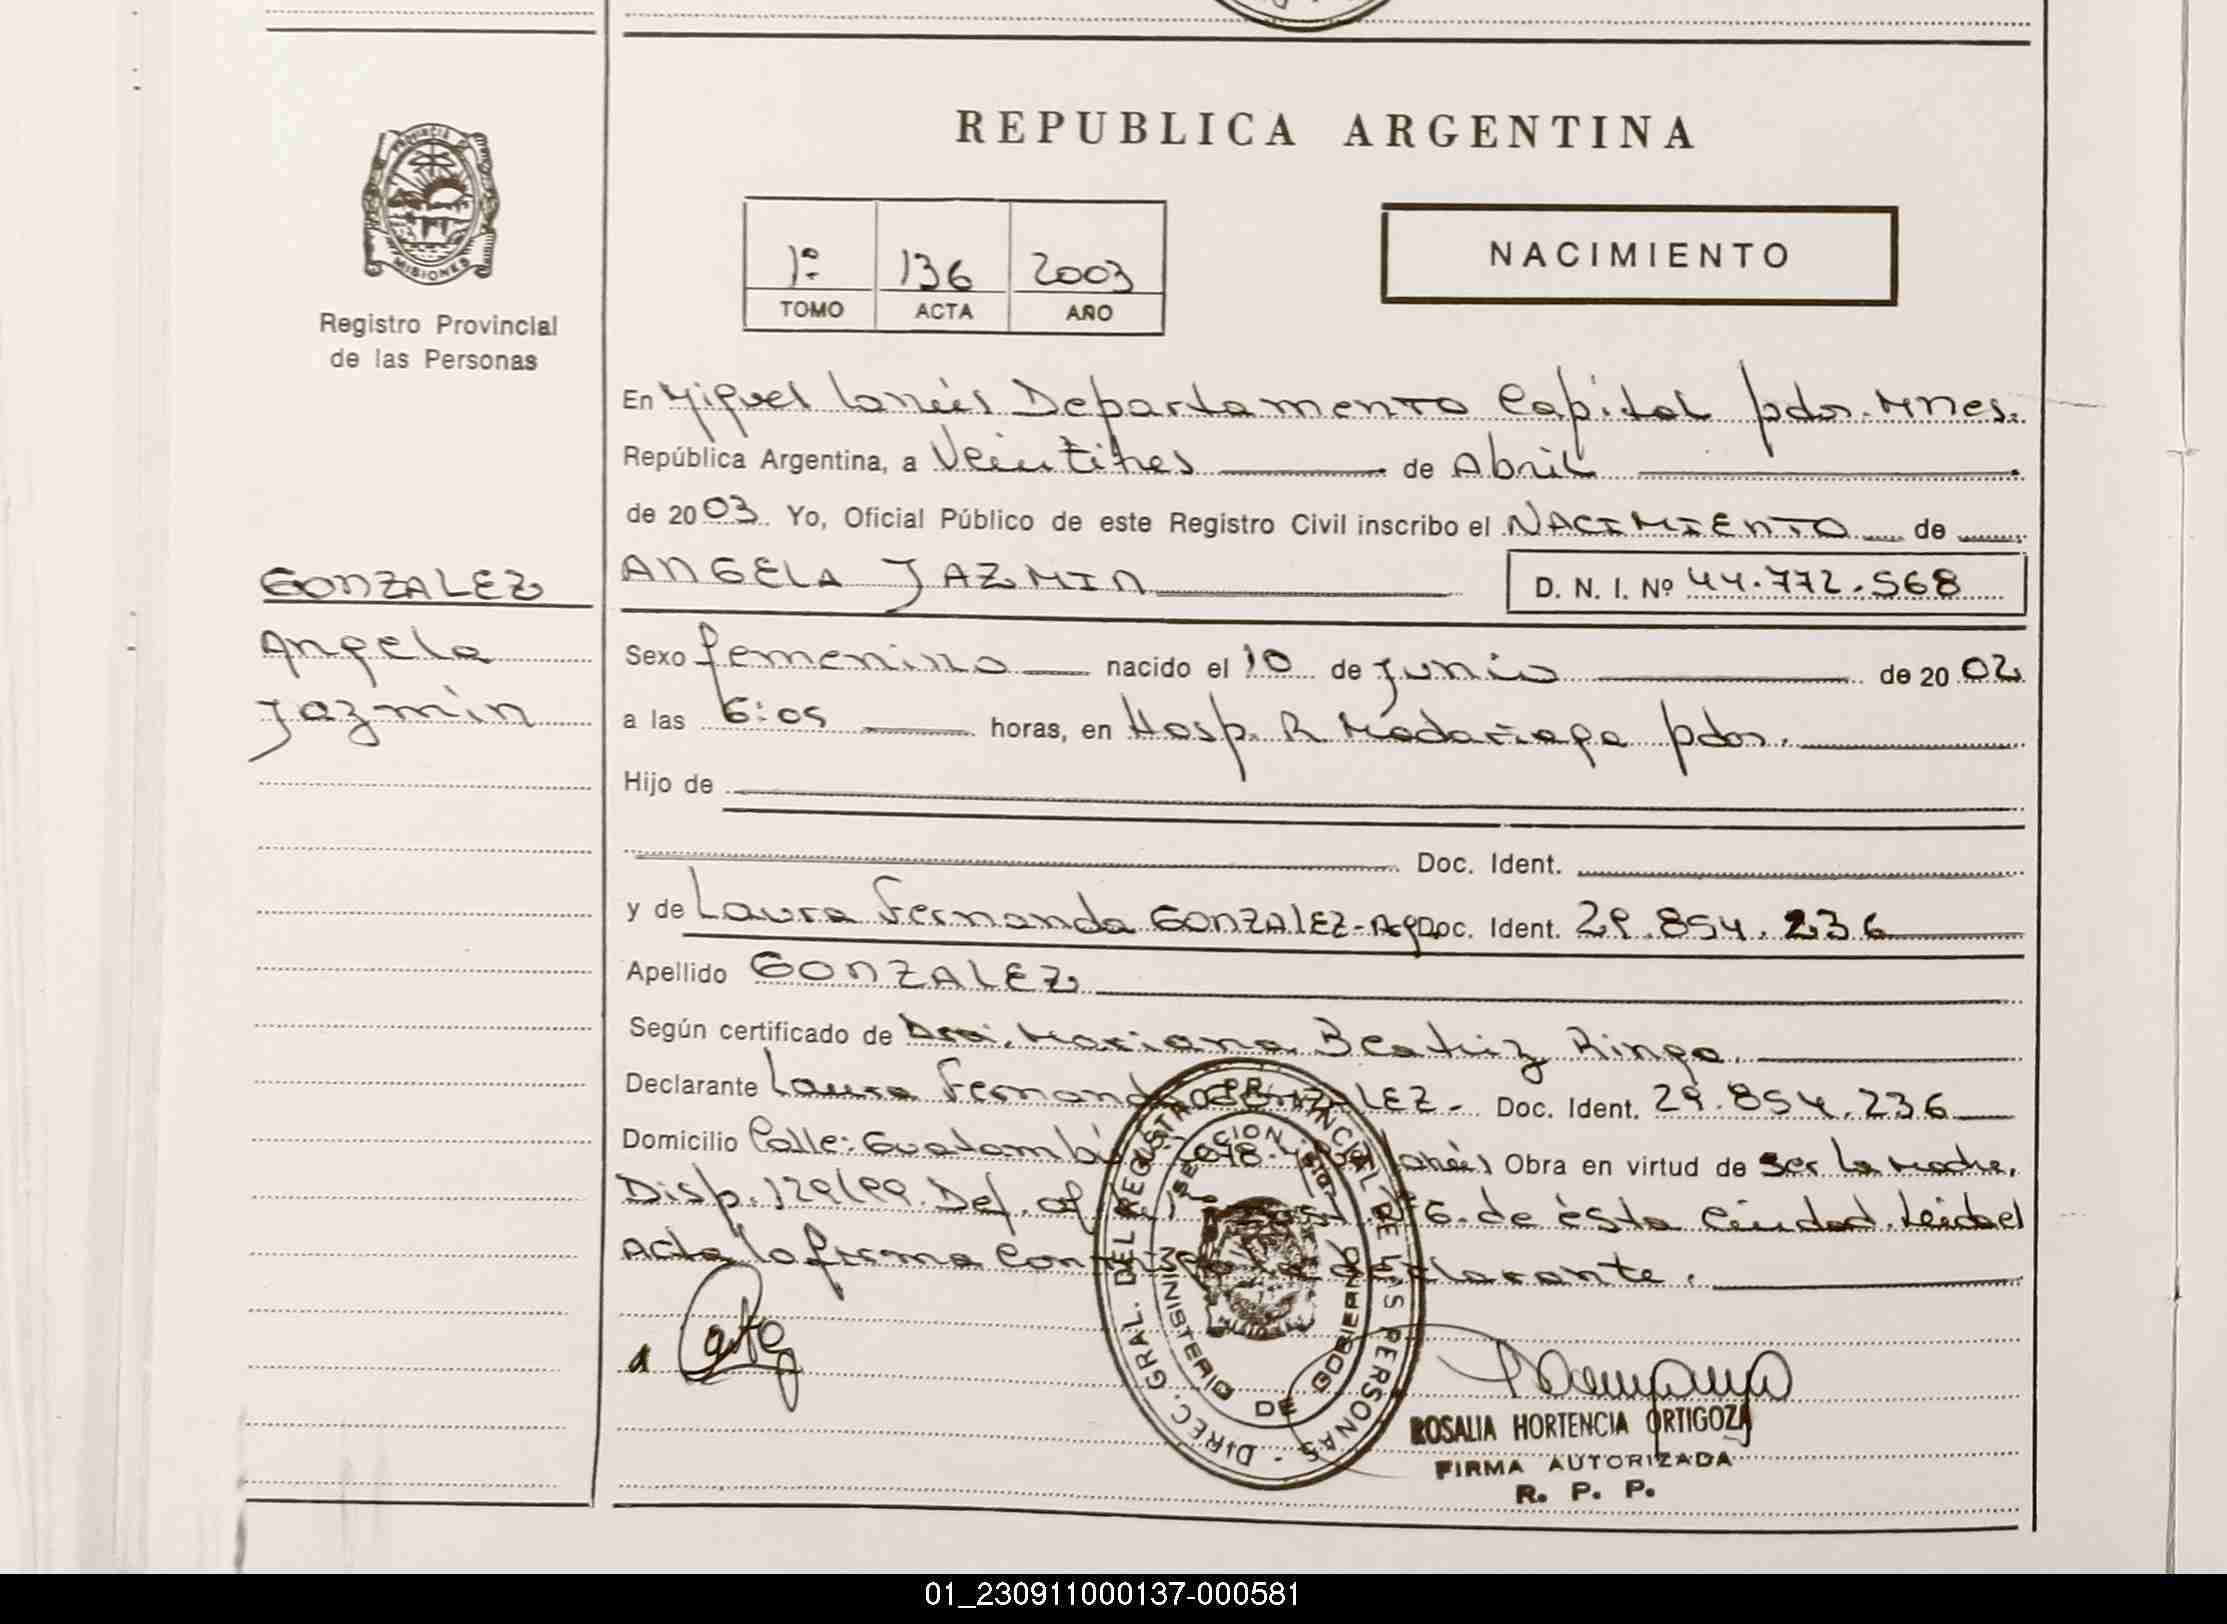 REPUBLICA ARGENTINA
PROVINCIA
MISIONES
Registro Provincial
de las Personas
1º 136 2003
TOMO ACTA AÑO
NACIMIENTO
En Miguel Lanús Departamento Capital pdas. Mnes.
República Argentina, a Veintitres de Abril
de 2003. Yo, Oficial Público de este Registro Civil inscribo el NACIMIENTO de
ANGELA JAZMIN D. N. I. Nº 44.772.568
GONZALEZ
Angela
Jazmin
Sexo femenino nacido el 10 de Junio de 2002
a las 6:05 horas, en Hosp. R Madariaga pdas.
Hijo de
Doc. Ident.
y de Laura Fernanda GONZALEZ-Arg. Doc. Ident. 29.854.236
Apellido GONZALEZ
Según certificado de Dra. Mariana Beatriz Ringa.
Declarante Laura Fernanda GONZALEZ- Doc. Ident. 29.854.236
Domicilio Calle: Guatambú Lanús Obra en virtud de ser la madre,
Disp. 129/99. Def. of de ésta Ciudad. Leida el
Acta la firma conmigo la declarante.
DIREC. GRAL. DEL REGISTRO PROVINCIAL DE LAS PERSONAS
MINISTERIO DE GOBIERNO
SECCION
ROSALIA HORTENCIA ORTIGOZA
FIRMA AUTORIZADA
R. P. P.
01_230911000137-000581